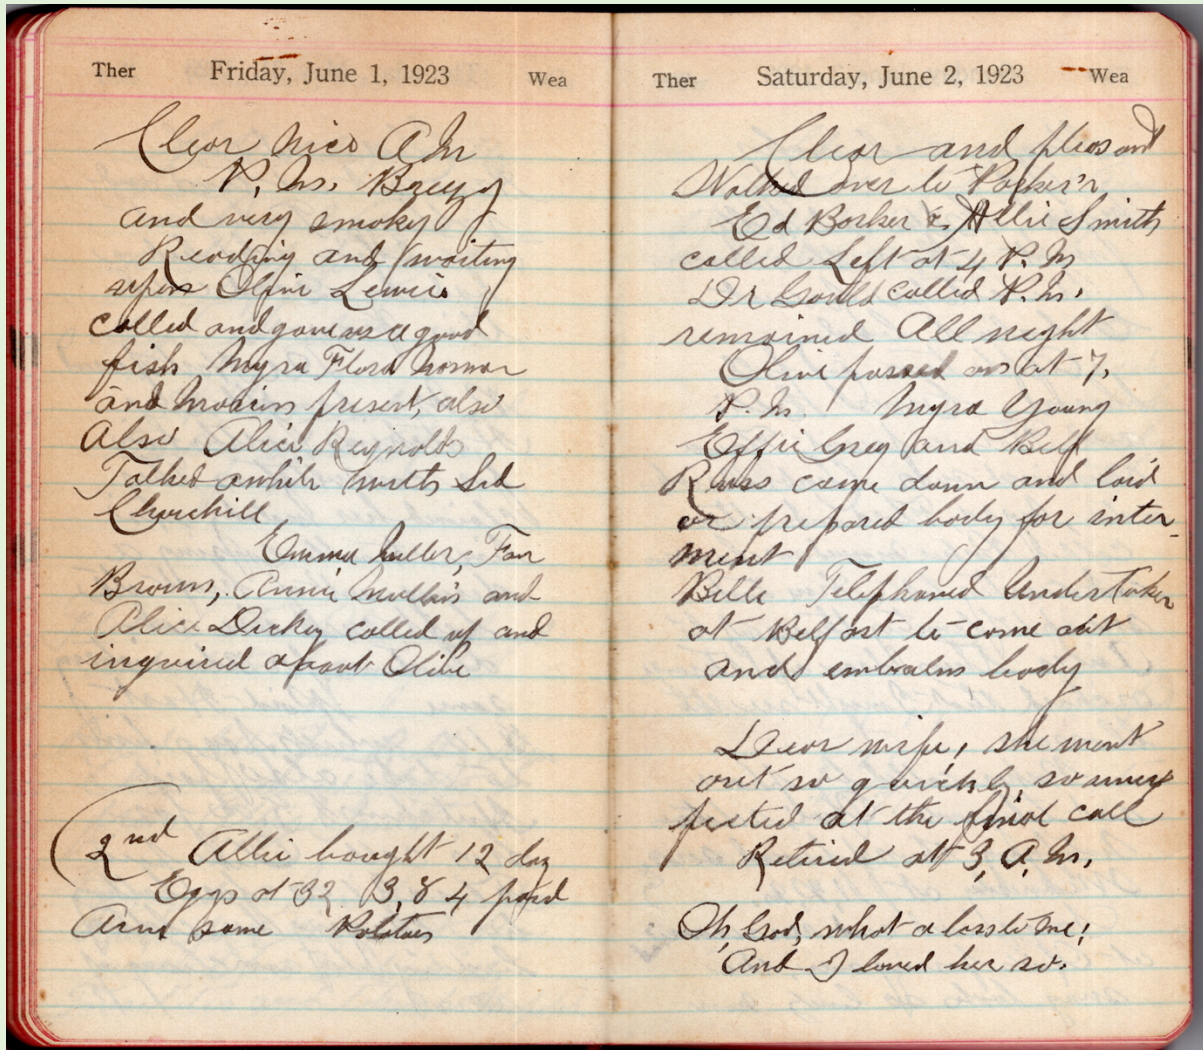 Ther Friday, June 1, 1923 Wea
Clear Nice A M
P. M. Breezy
and very smoky
Reading and waiting
upon Olive Lewis
called and gave us a good
fish Myra Flora
and present, also
Also Alice Reynolds
Talked awhile with Sid
Churchill
Emma Miller, Fan
Brown, Annie Mullin and
Alice Dickey called up and
inquired about Olive
(2nd Allie bought 12 doz
Eggs at 32 3,84 paid
same Potatoes
Ther Saturday, June 2, 1923 Wea
Clear and pleasant
Walked over to Parker's
Ed Barker & Allie Smith
called Left at 4 P. M
Dr Gould called P. M.
remained All night
Olive passed on at 7,
P. M. Myra Young
Effie Gray and Bell
Russ came down and laid
or prepared body for inter-
ment
Belle Telephoned Undertaker
at Belfast to come out
and embalm body
Dear wife, she went
out so quickly, so unex
pected at the final call
Retired at 3, A. M.
Oh, God, what a loss to me;
And I loved her so.